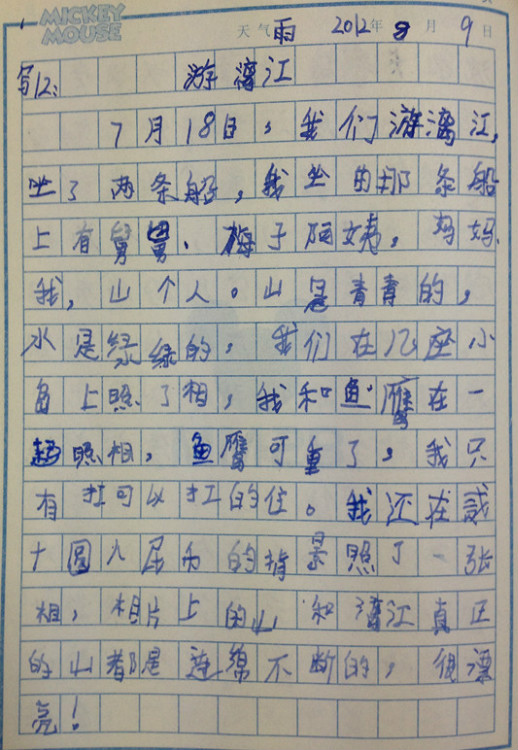 MICKEY
MOUSE
天气 雨 2012年 8 月 9 日
写12: 游漓江
7月18日,我们游漓江,
坐了两条船,我坐的那条船
上有舅舅、梅子阿姨,妈妈、
我,山个人。山是青青的,
水是绿绿的,我们在几座小
岛上照了相,我和鱼鹰在一
起照相,鱼鹰可重了,我只
有扛可以扛的住。我还在
十圆人民币的背景照了一张
相,相片上的山和漓江真正
的山都是连绵不断的,很漂
亮!